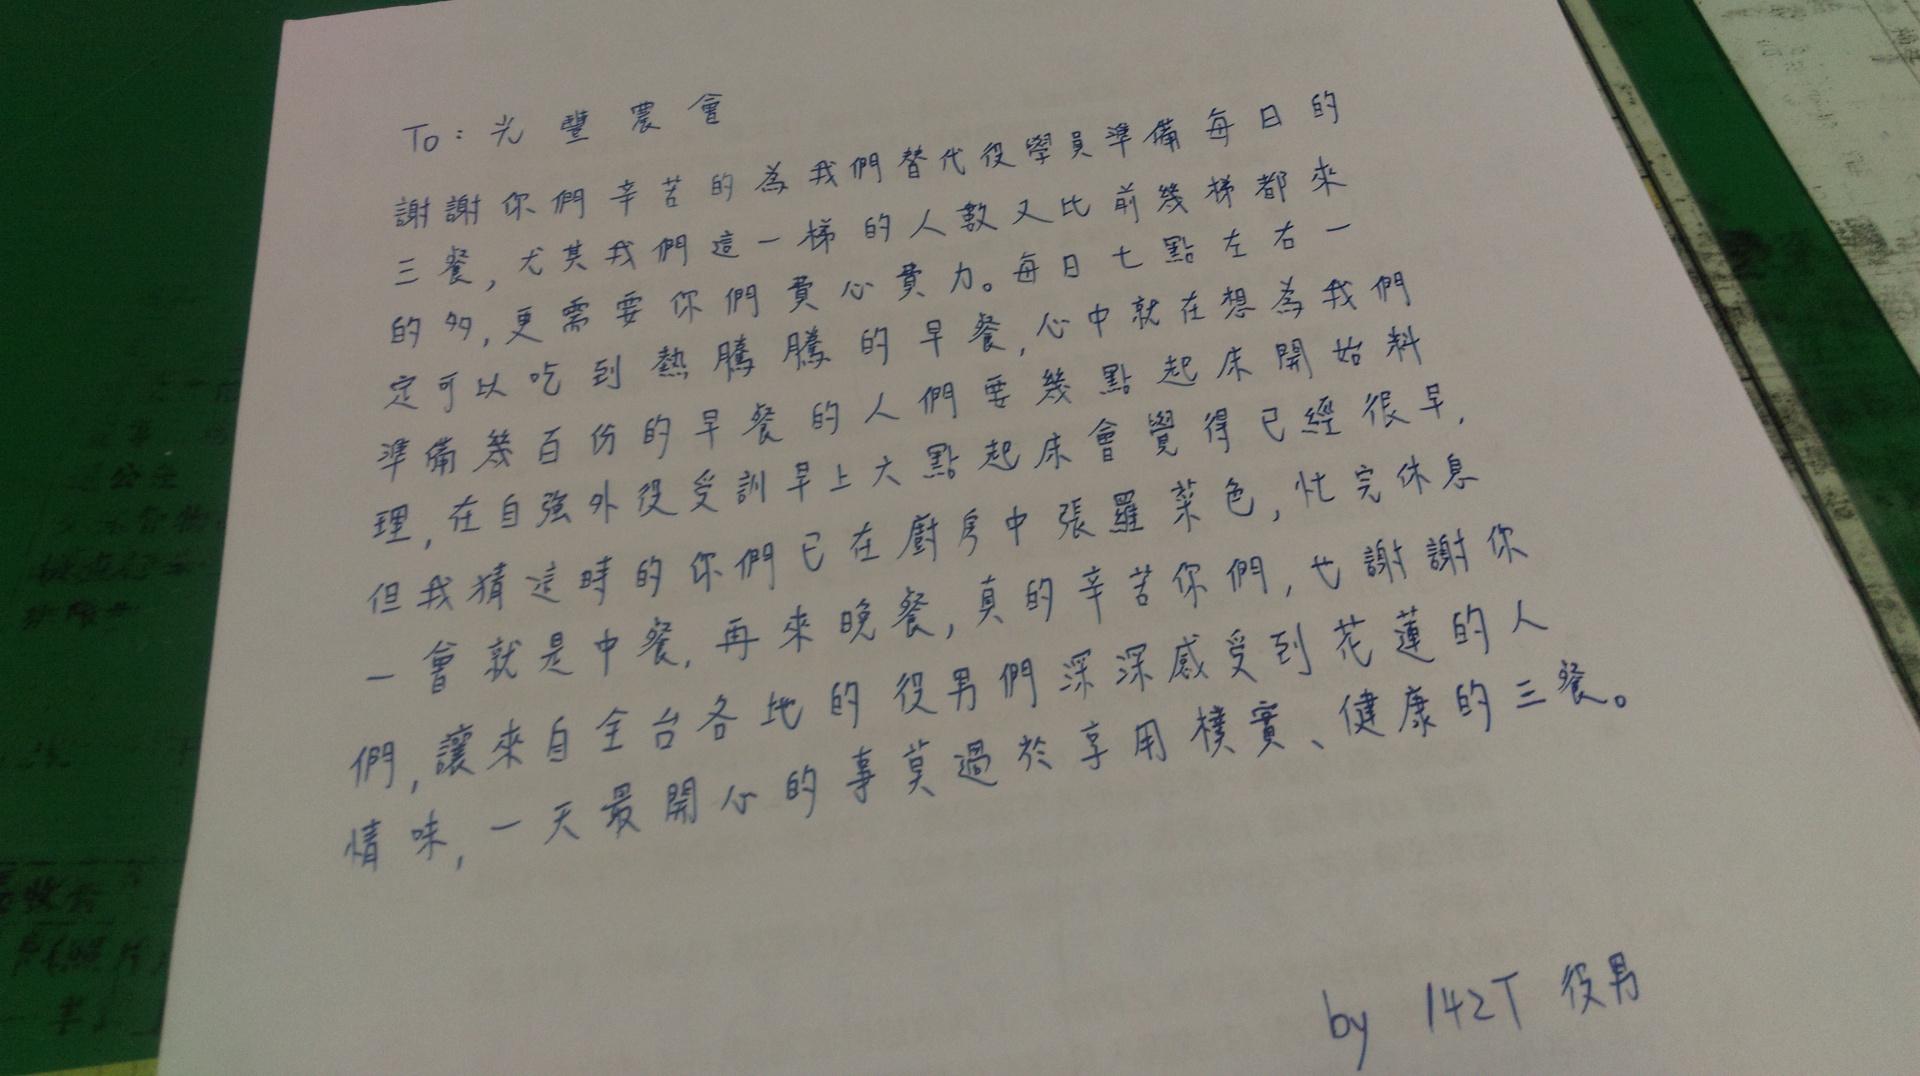 To：光豐農會
謝謝你們辛苦的為我們替代役學員準備每日的
三餐，尤其我們這一梯的人數又比前幾梯都來
的多，更需要你們費心費力。每日七點左右一
定可以吃到熱騰騰的早餐，心中就在想為我們
準備幾百份的早餐的人們要幾點起床開始料
理，在自強外役受訓早上六點起床會覺得已經很早，
但我猜這時的你們已在廚房中張羅菜色，忙完休息
一會就是中餐，再來晚餐，真的辛苦你們，也謝謝你
們，讓來自全台各地的役男們深深感受到花蓮的人
情味，一天最開心的事莫過於享用樸實、健康的三餐。
by 142T 役男